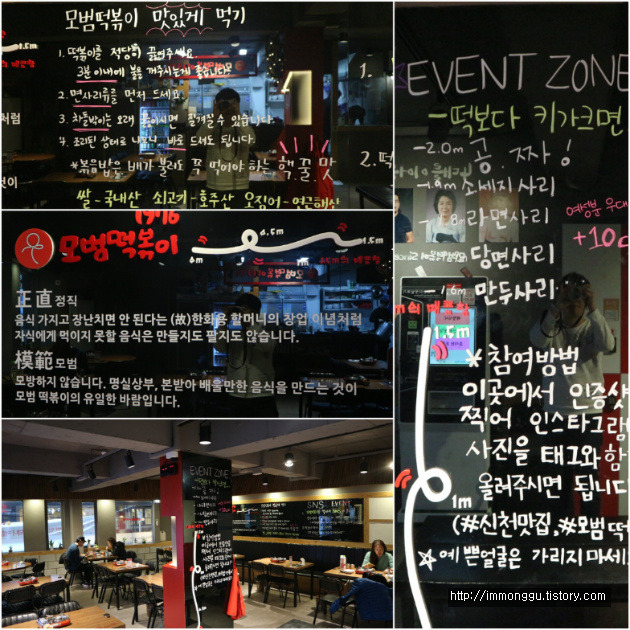 모범떡볶이 맛있게 먹기
1. 떡볶이를 적당히 끓여주세요.
3분 이내에 불을 꺼주시는게 좋습니다.
2. 면사리류를 먼저 드세요.
3. 차돌박이는 오래 끓이시면 질겨질 수 있습니다.
4. 조리된 상태로 나오니 바로 드셔도 됩니다.
*볶음밥은 배가 불러도 꼭 먹어야 하는 핵꿀맛
쌀-국내산 쇠고기-호주산 오징어-연근해산
1.
2. 떡
1976
모범떡볶이
1.5m
正直 정직
음식 가지고 장난치면 안 된다는 (故)한화용 할머니의 창업 이념처럼
자식에게 먹이지 못할 음식은 만들지도 팔지도 않습니다.
模範 모범
모방하지 않습니다. 명실상부, 본받아 배울만한 음식을 만드는 것이
모범 떡볶이의 유일한 바람입니다.
EVENT ZONE
SNS EVENT
EVENT ZONE
-떡보다 키가크면
-2.0m 공.짜!
-1.9m 소세지사리
라면사리
당면사리
1.6m 만두사리
여성분 우대
+10c
1.5m
*참여방법
이곳에서 인증샷
찍어 인스타그램
사진을 태그와 함
올려주시면 됩니다
1m
(#신천맛집,#모범떡
☆예쁜얼굴은 가리지마세
http://immonggu.tistory.com